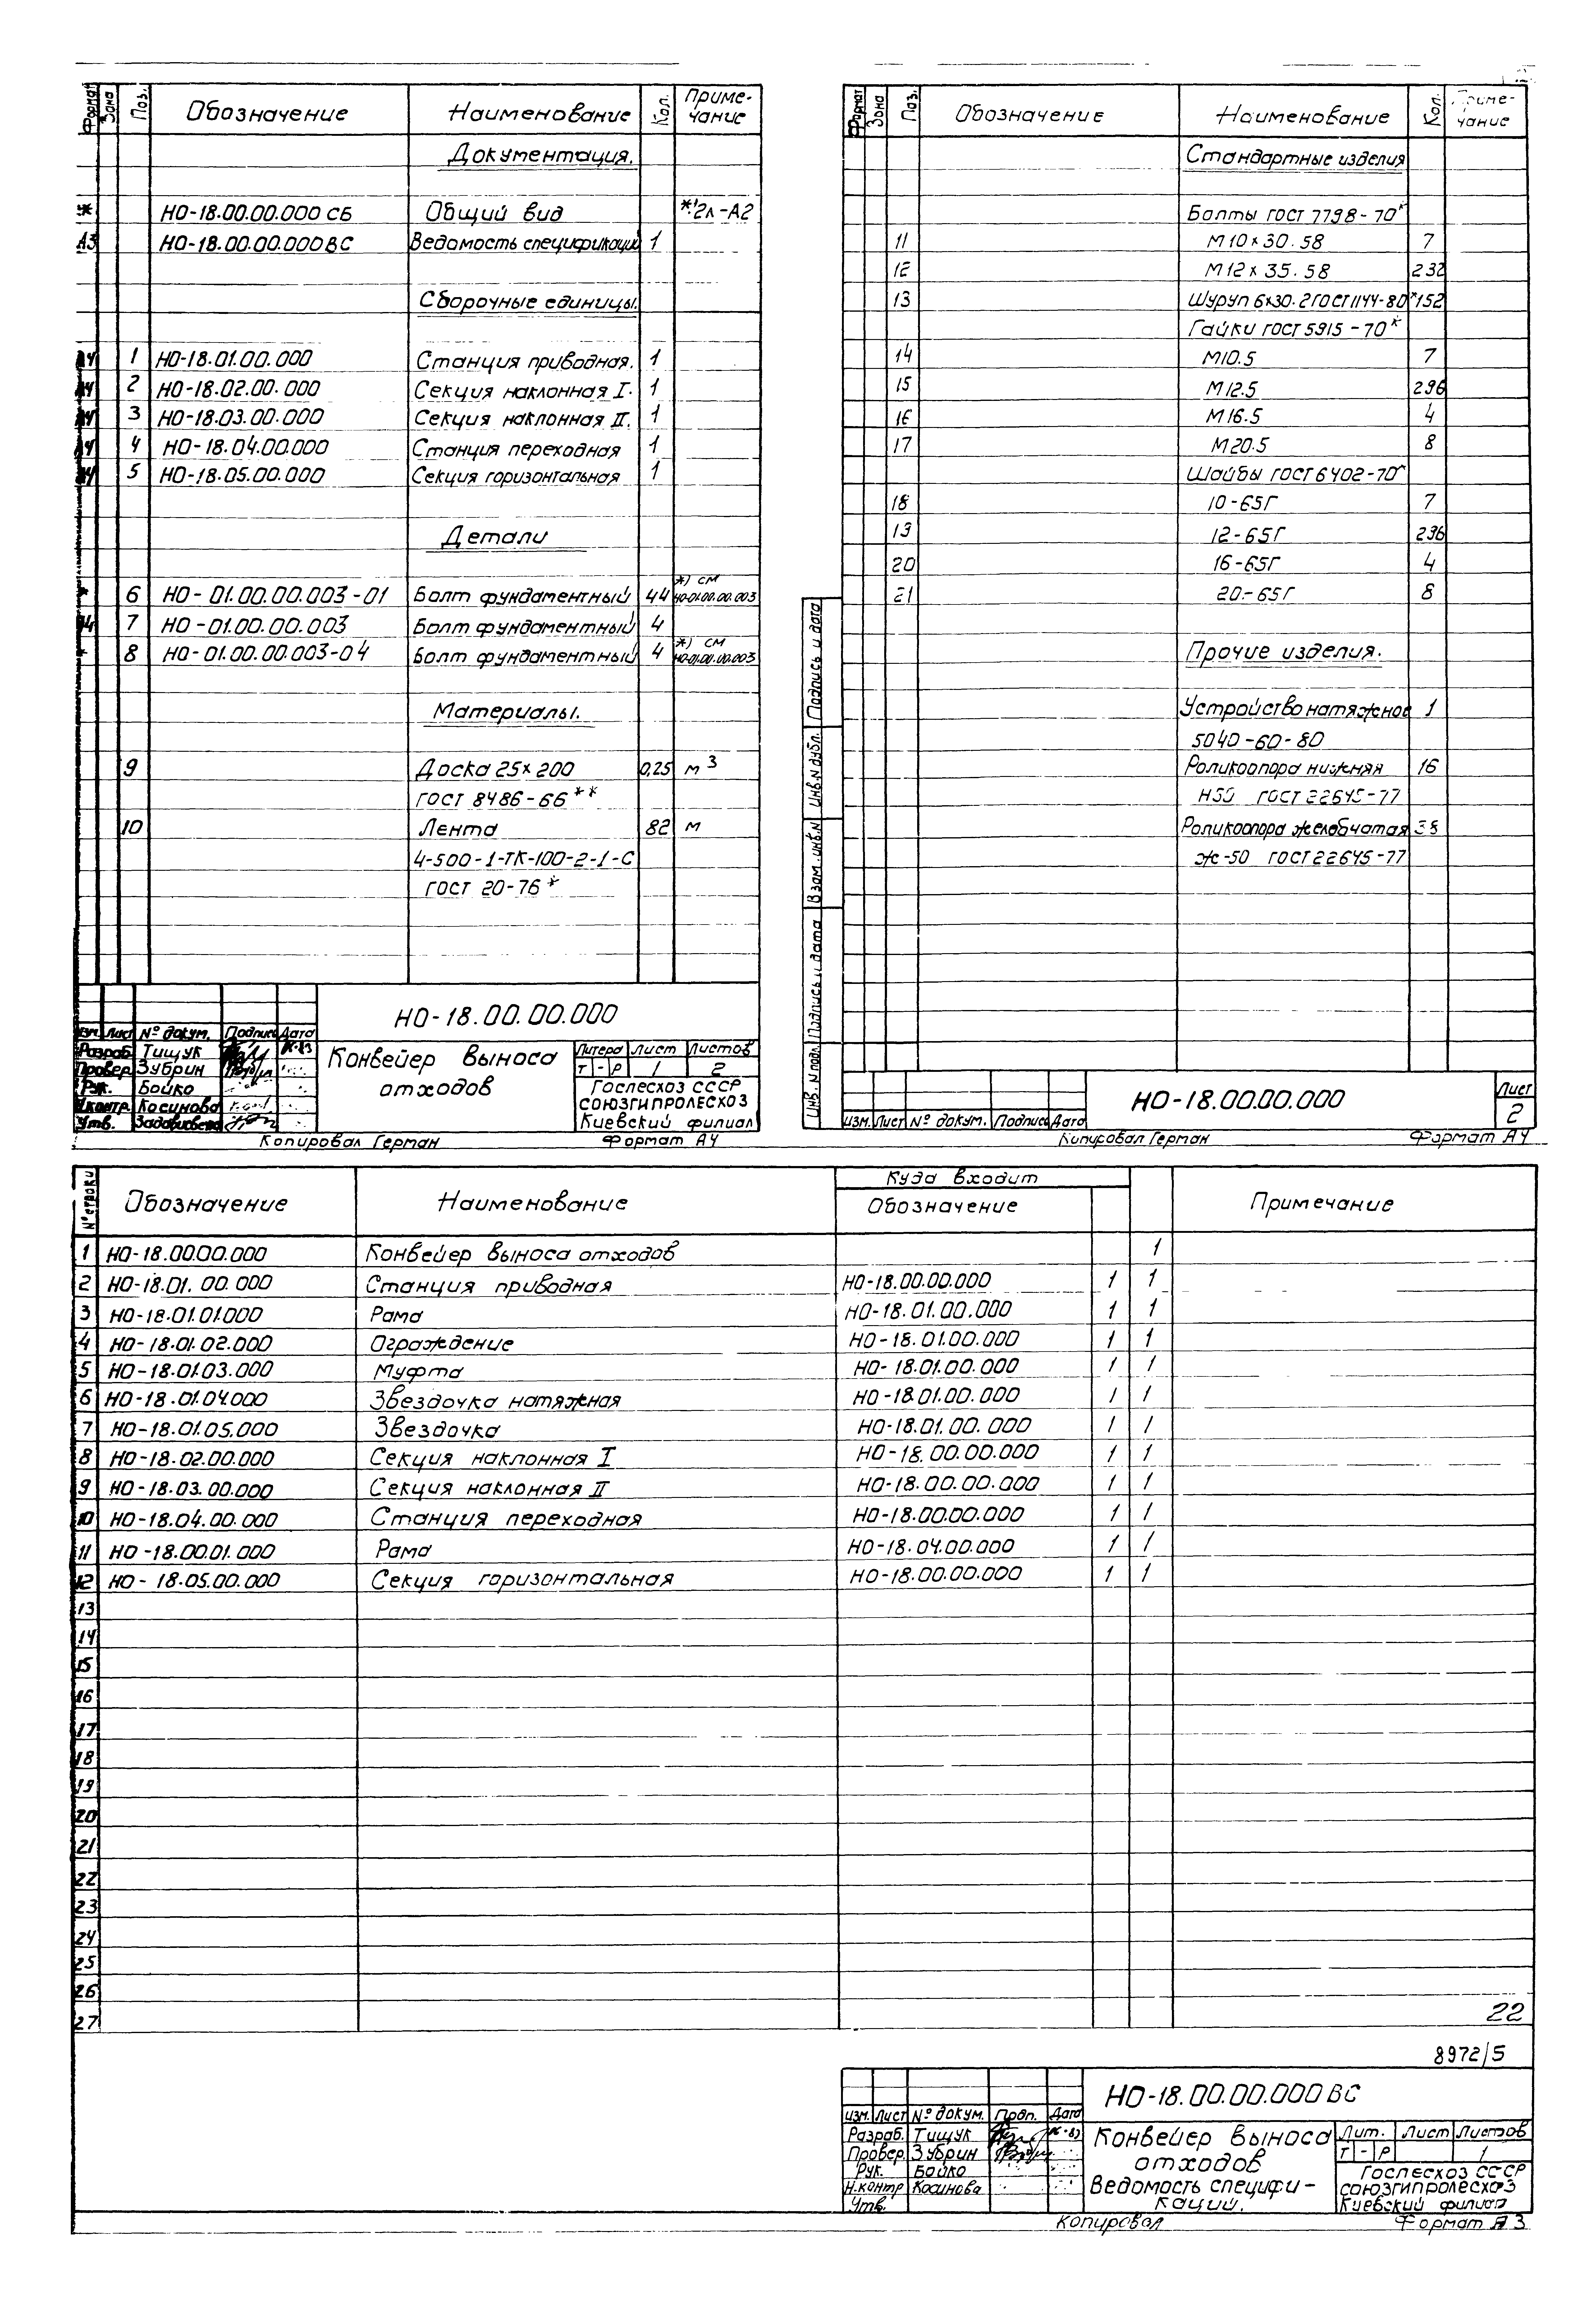 Формат Зона Поз. Обозначение Наименование Кол. Приме-
чание
Документация.
* НО-18.00.00.000 СБ Общий вид *)2л-А2
А3 НО-18.00.00.000ВС Ведомость спецификаций 1
Сборочные единицы.
А4 1 НО-18.01.00.000 Станция приводная. 1
А4 2 НО-18.02.00.000 Секция наклонная I. 1
А4 3 НО-18.03.00.000 Секция наклонная II. 1
А4 4 НО-18.04.00.000 Станция переходная 1
А4 5 НО-18.05.00.000 Секция горизонтальная 1
Детали
* 6 НО-01.00.00.003-01 Болт фундаментный 44 *) см
НО-01.00.00.003
А4 7 НО-01.00.00.003 Болт фундаментный 4
* 8 НО-01.00.00.003-04 Болт фундаментный 4 *) см
НО-01.00.00.003
Материалы.
9 Доска 25х200 0,25 м³
ГОСТ 8486-66**
10 Лента 82 м
4-500-1-ТК-100-2-1-С
ГОСТ 20-76*
НО-18.00.00.000
Изм. Лист № докум. Подпись Дата
Разраб. Тищук IX-83
Провер. Зубрин
Рук. Бойко
Н.контр. Косинова
Утв.
Конвейер выноса
отходов
Литера Лист Листов
Т - Р 1 2
Гослесхоз СССР
СОЮЗГИПРОЛЕСХОЗ
Киевский филиал
Копировал Герман Формат А4
Формат Зона Поз. Обозначение Наименование Кол. Приме-
чание
Стандартные изделия
Болты ГОСТ 7798-70*
11 М10х30.58 7
12 М12х35.58 232
13 Шуруп 6х30.2 ГОСТ 1144-80* 152
Гайки ГОСТ 5915-70*
14 М10.5 7
15 М12.5 296
16 М16.5 4
17 М20.5 8
Шайбы ГОСТ 6402-70*
18 10-65Г 7
19 12-65Г 296
20 16-65Г 4
21 20-65Г 8
Прочие изделия.
Устройство натяжное 1
5040-60-80
Роликоопора нижняя 16
Н50 ГОСТ 22645-77
Роликоопора желобчатая 38
Ж-50 ГОСТ 22645-77
Инв.N подл. Подпись и дата Взам.инв.N Инв.N дубл. Подпись и дата
Изм. Лист № докум. Подпись Дата
НО-18.00.00.000
Лист
2
Копировал Герман Формат А4
№ строки Обозначение Наименование Куда входит Примечание
Обозначение
1 НО-18.00.00.000 Конвейер выноса отходов 1
2 НО-18.01.00.000 Станция приводная НО-18.00.00.000 1 1
3 НО-18.01.01.000 Рама НО-18.01.00.000 1 1
4 НО-18.01.02.000 Ограждение НО-18.01.00.000 1 1
5 НО-18.01.03.000 Муфта НО-18.01.00.000 1 1
6 НО-18.01.04.000 Звездочка натяжная НО-18.01.00.000 1 1
7 НО-18.01.05.000 Звездочка НО-18.01.00.000 1 1
8 НО-18.02.00.000 Секция наклонная I НО-18.00.00.000 1 1
9 НО-18.03.00.000 Секция наклонная II НО-18.00.00.000 1 1
10 НО-18.04.00.000 Станция переходная НО-18.00.00.000 1 1
11 НО-18.00.01.000 Рама НО-18.04.00.000 1 1
12 НО-18.05.00.000 Секция горизонтальная НО-18.00.00.000 1 1
13
14
15
16
17
18
19
20
21
22
23
24
25
26
27
22
8972/5
НО-18.00.00.000 ВС
Изм. Лист № докум. Подп. Дата
Разраб. Тищук IX-83
Провер. Зубрин
Рук. Бойко
Н.контр Косинова
Утв.
Конвейер выноса
отходов
Ведомость специфи-
каций.
Лит. Лист Листов
Т - Р 1
Гослесхоз СССР
СОЮЗГИПРОЛЕСХОЗ
Киевский филиал
Копировал Формат А3